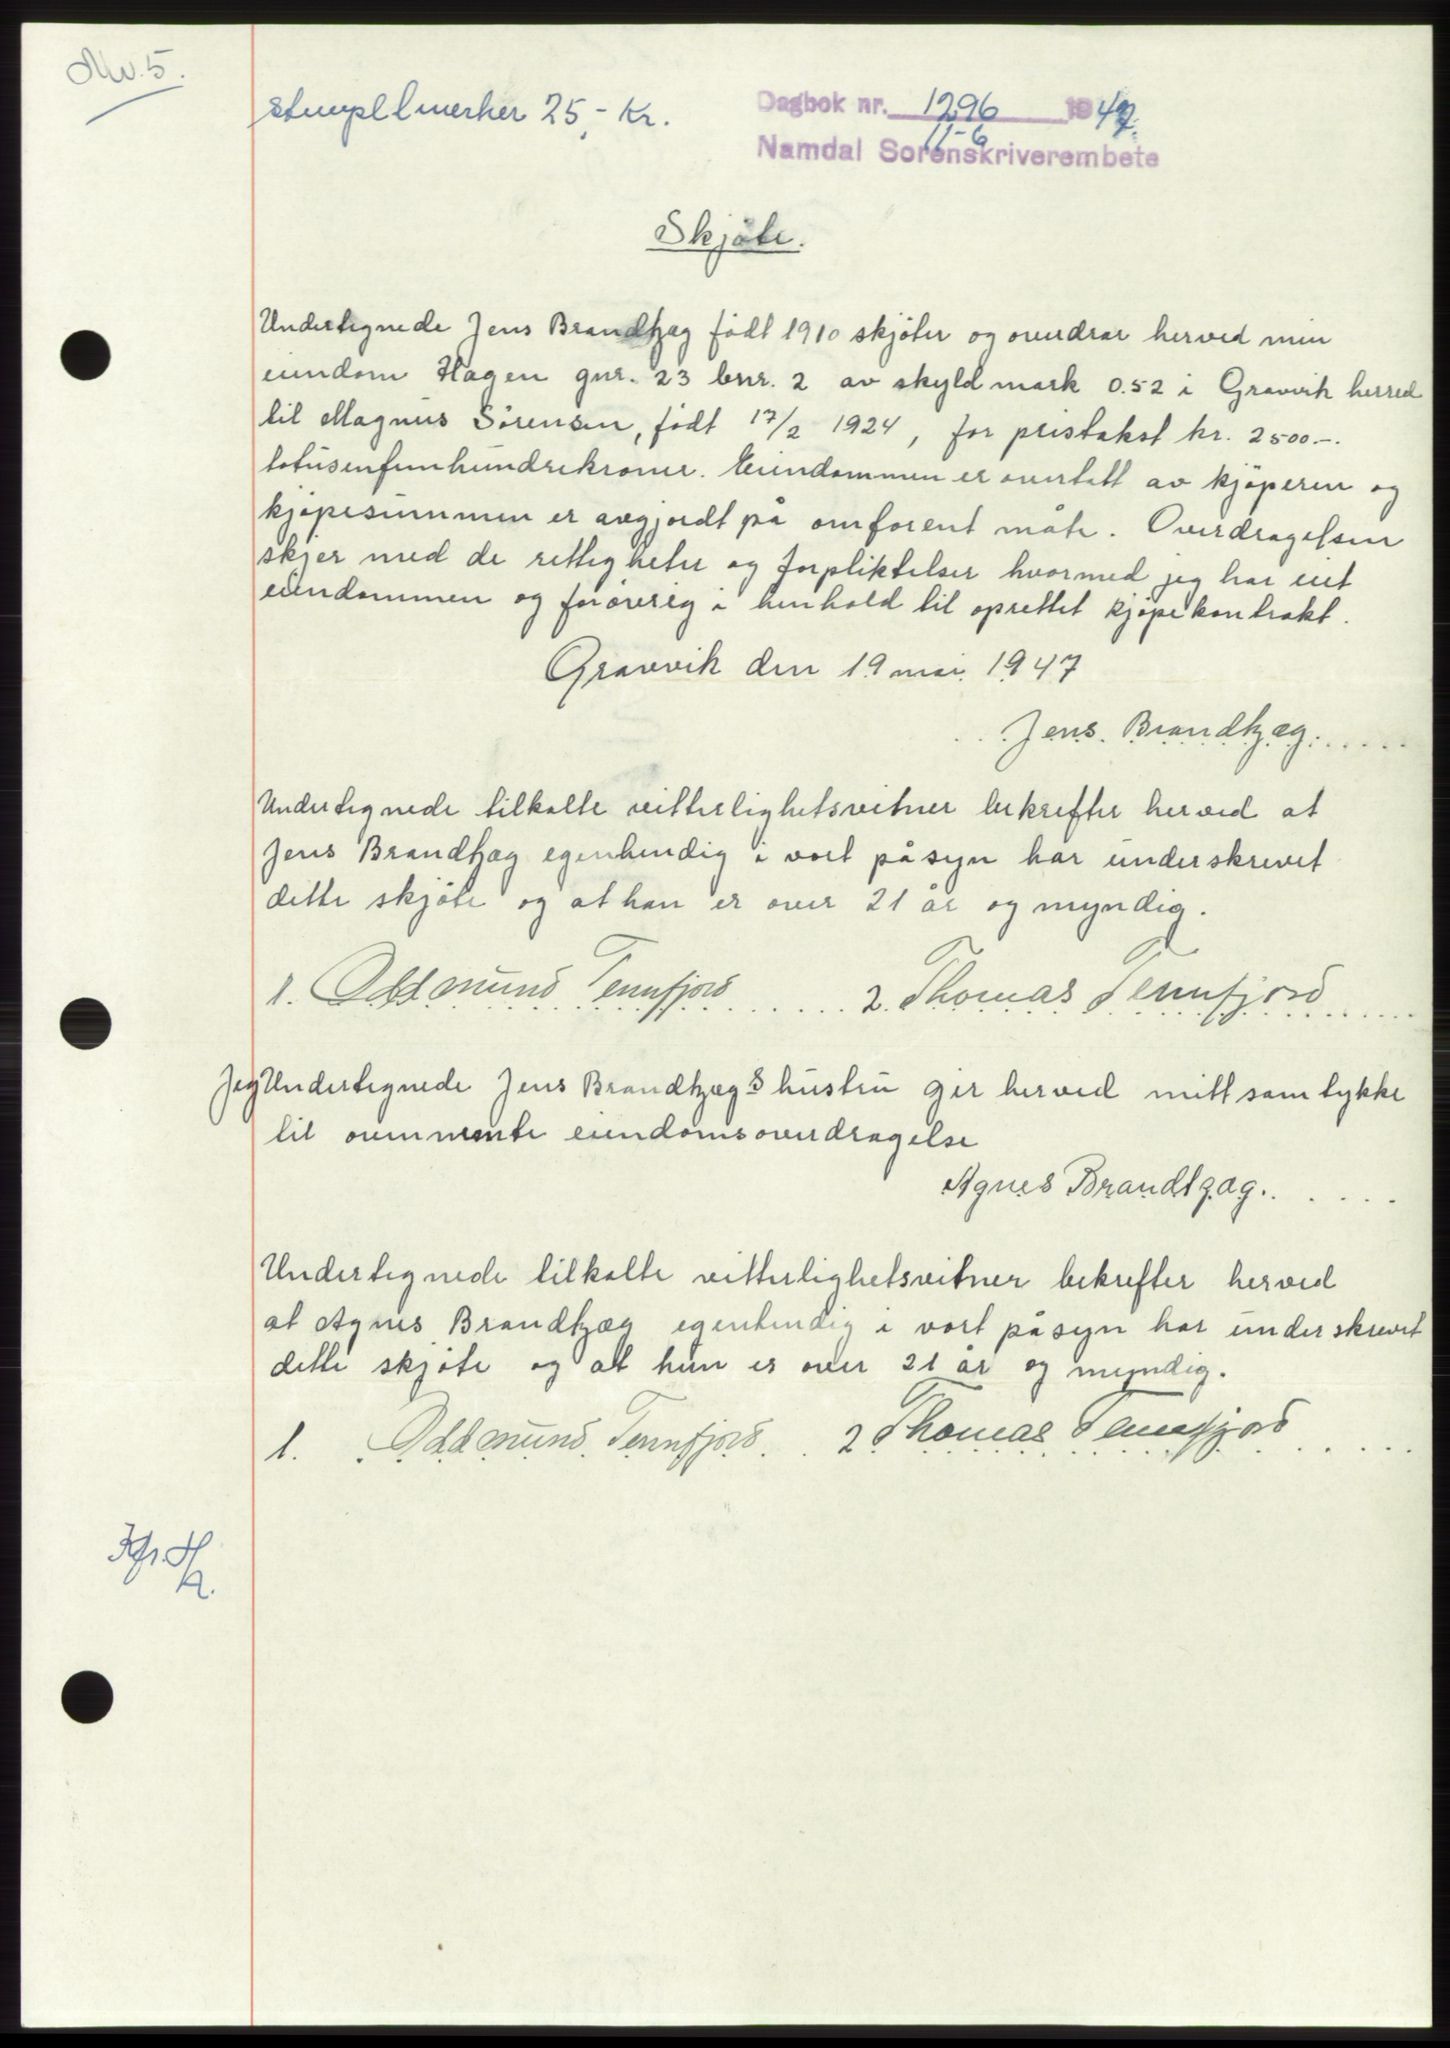 Nr. 5.
stempellmerker 25,- Kr.
Dagbok nr. 1296 1947.
11-6
Namdal Sorenskriverembete
Skjöte.
Undertegnede Jens Brandtzæg født 1910 skjöter og overdrar herved min
eiendom Hagen gnr. 23 bnr. 2 av skyld mark 0.52 i Gravvik herred
til Magnus Sörensen, född 17/2 1924, for pristakst kr. 2500.-.
totusenfemhundrekroner. Eiendommen er overtatt av kjöperen og
kjöpesummen er avgjordt på omforent måte. Overdragelsen
skjer med de rettigheter og forpliktelser hvormed jeg har eiet
eiendommen og foröverig i henhold til oprettet kjöpekontrakt.
Gravvik den 19 mai 1947
Jens Brandtzæg.
Undertegnede tilkalte vitterlighetsvitner bekrefter herved at
Jens Brandtzæg egenhendig i vort påsyn har underskrevet
dette skjöte og at han er over 21 år og myndig.
1. Oddmund Tennfjord 2. Thomas Tennfjord
Jeg Undertegnede Jens Brandtzægs hustru gir herved mitt samtykke
til ovennevnte eiendomsoverdragelse
Agnes Brandtzæg.
Undertegnede tilkalte vitterlighetsvitner bekrefter herved
at Agnes Brandtzæg egenhendig i vort påsyn har underskrevet
dette skjöte og at hun er over 21 år og myndig.
1. Oddmund Tennfjord 2 Thomas Tennfjord